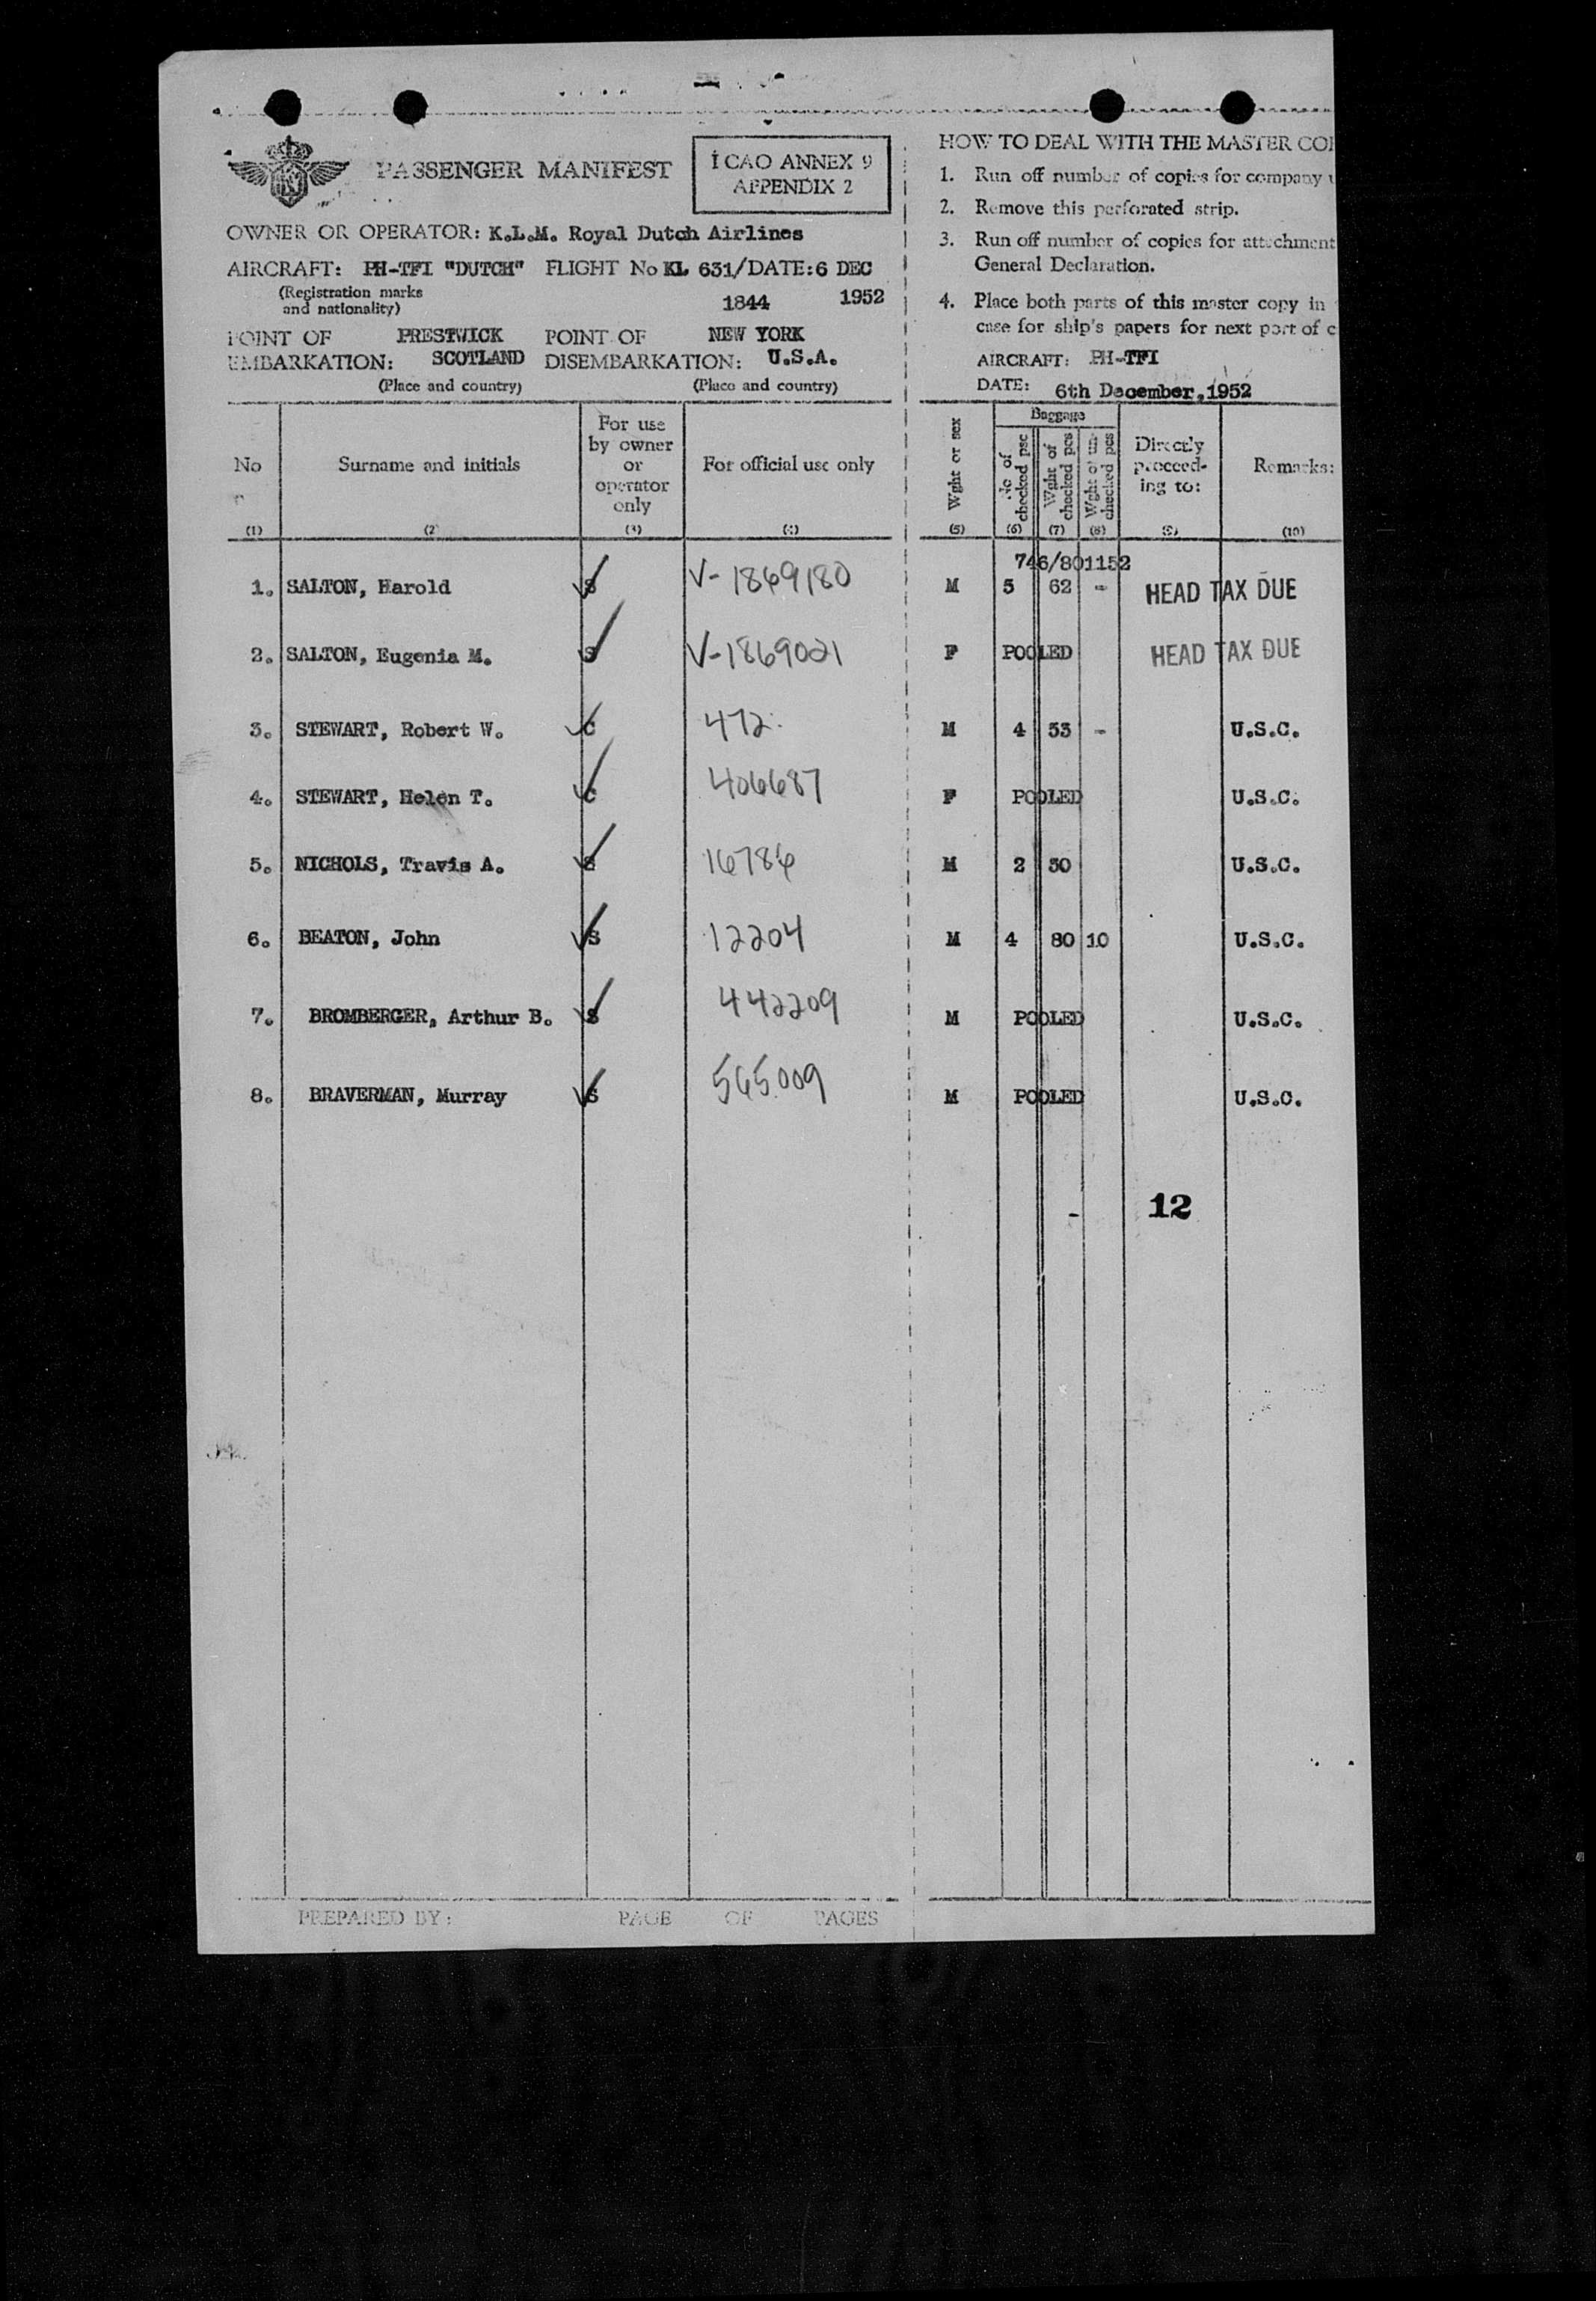 PASSENGER MANIFEST
ICAO ANNEX 9
APPENDIX 2
OWNER OR OPERATOR: K.L.M. Royal Dutch Airlines
AIRCRAFT: PH-TFI "DUTCH" FLIGHT No KL 631/DATE:6 DEC
(Registration marks
and nationality)
1844 1952
POINT OF PRESTWICK POINT OF NEW YORK
EMBARKATION: SCOTLAND DISEMBARKATION: U.S.A.
(Place and country) (Place and country)
HOW TO DEAL WITH THE MASTER
1. Run off number of copies for company
2. Remove this perforated strip.
3. Run off number of copies for attachment
General Declaration.
4. Place both parts of this master copy in
case for ship's papers for next port of c
AIRCRAFT: PH-TFI
DATE: 6th December, 1952
No Surname and initials For use by owner or operator only For official use only Wght or sex Baggage No of checked psc Wght of checked pcs Wght of un- checked pcs Directly proceed- ing to: Remarks:
(1) (2) (3) (4) (5) (6) (7) (8) (9) (10)
746/801152
1. SALTON, Harold S V-1869180 M 5 62 - HEAD TAX DUE
2. SALTON, Eugenia M. S V-1869021 F POOLED HEAD TAX DUE
3. STEWART, Robert W. C 472. M 4 53 - U.S.C.
4. STEWART, Helen T. C 406687 F POOLED U.S.C.
5. NICHOLS, Travis A. S 16786 M 2 30 U.S.C.
6. BEATON, John S 12204 M 4 80 10 U.S.C.
7. BROMBERGER, Arthur B. S 442209 M POOLED U.S.C.
8. BRAVERMAN, Murray S 565009 M POOLED U.S.C.
- 12
PREPARED BY: PAGE OF PAGES